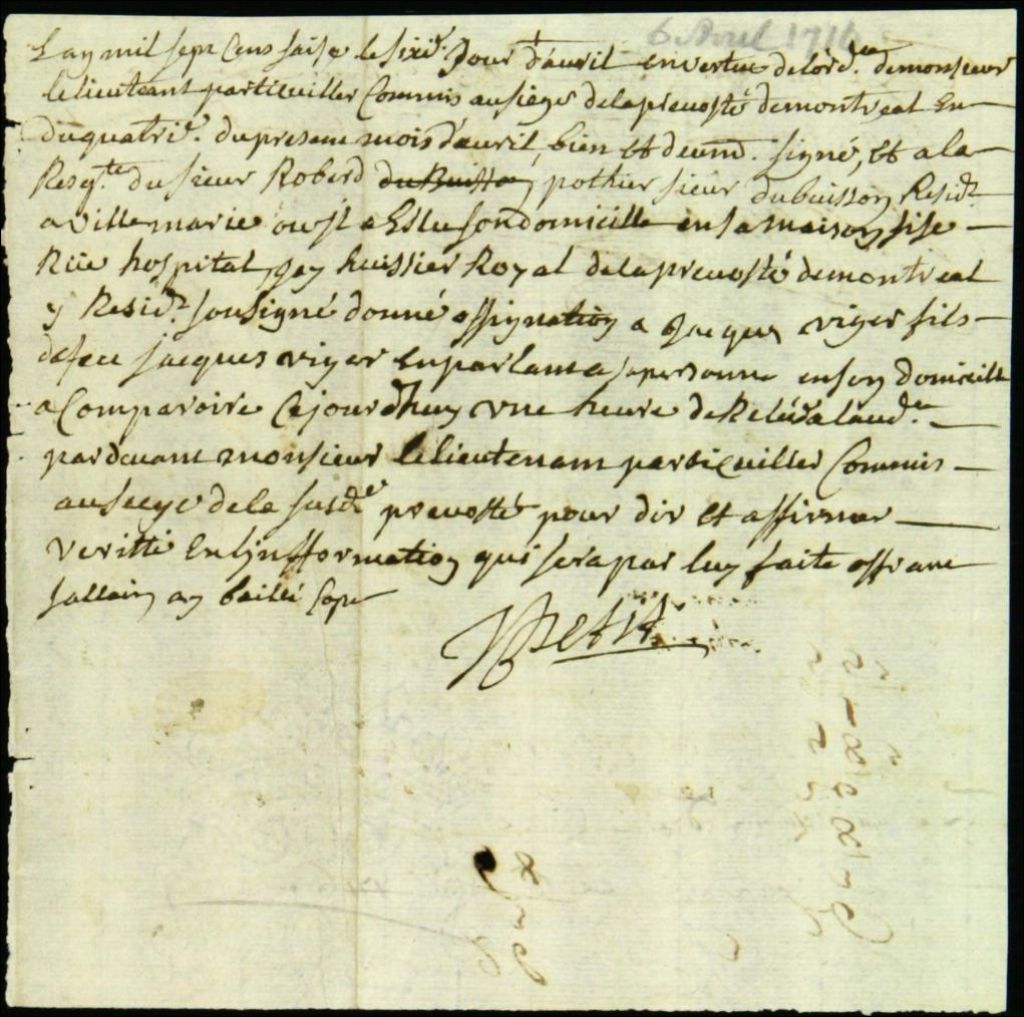 6 Avril 1716
Lan mil sept Cens saise le sixie. Jour d'auril en vertue de lord.ce de monsieur
le lieuteant particuiller Commis au siege de la preuosté de montreal En
du quatrie. du present mois d'auril, bien et deumt. signé, et a la
Reqte. du sieur Roberd du Buisson pothier sieur dubuisson Residt.
a Ville marie ou jl a Eslu son domicille en sa maison sise
Rüe hospital, Jay huissier Royal de la preuosté de montreal
y Residt. sousigné donné assignation a Jacques viger fils
defeu jacques viger En parlant a sa personne en son domicille
a Comparoire Cejourdhuy vne heure de Releuéalaud.ce
pardeuant monsieur le lieutenant particuiller Commis
au seege de la susde. preuosté pour dir et affirmer
Veritté En linfformation qui sera par luy faite
sallair, ay baillé Cope
JPetit